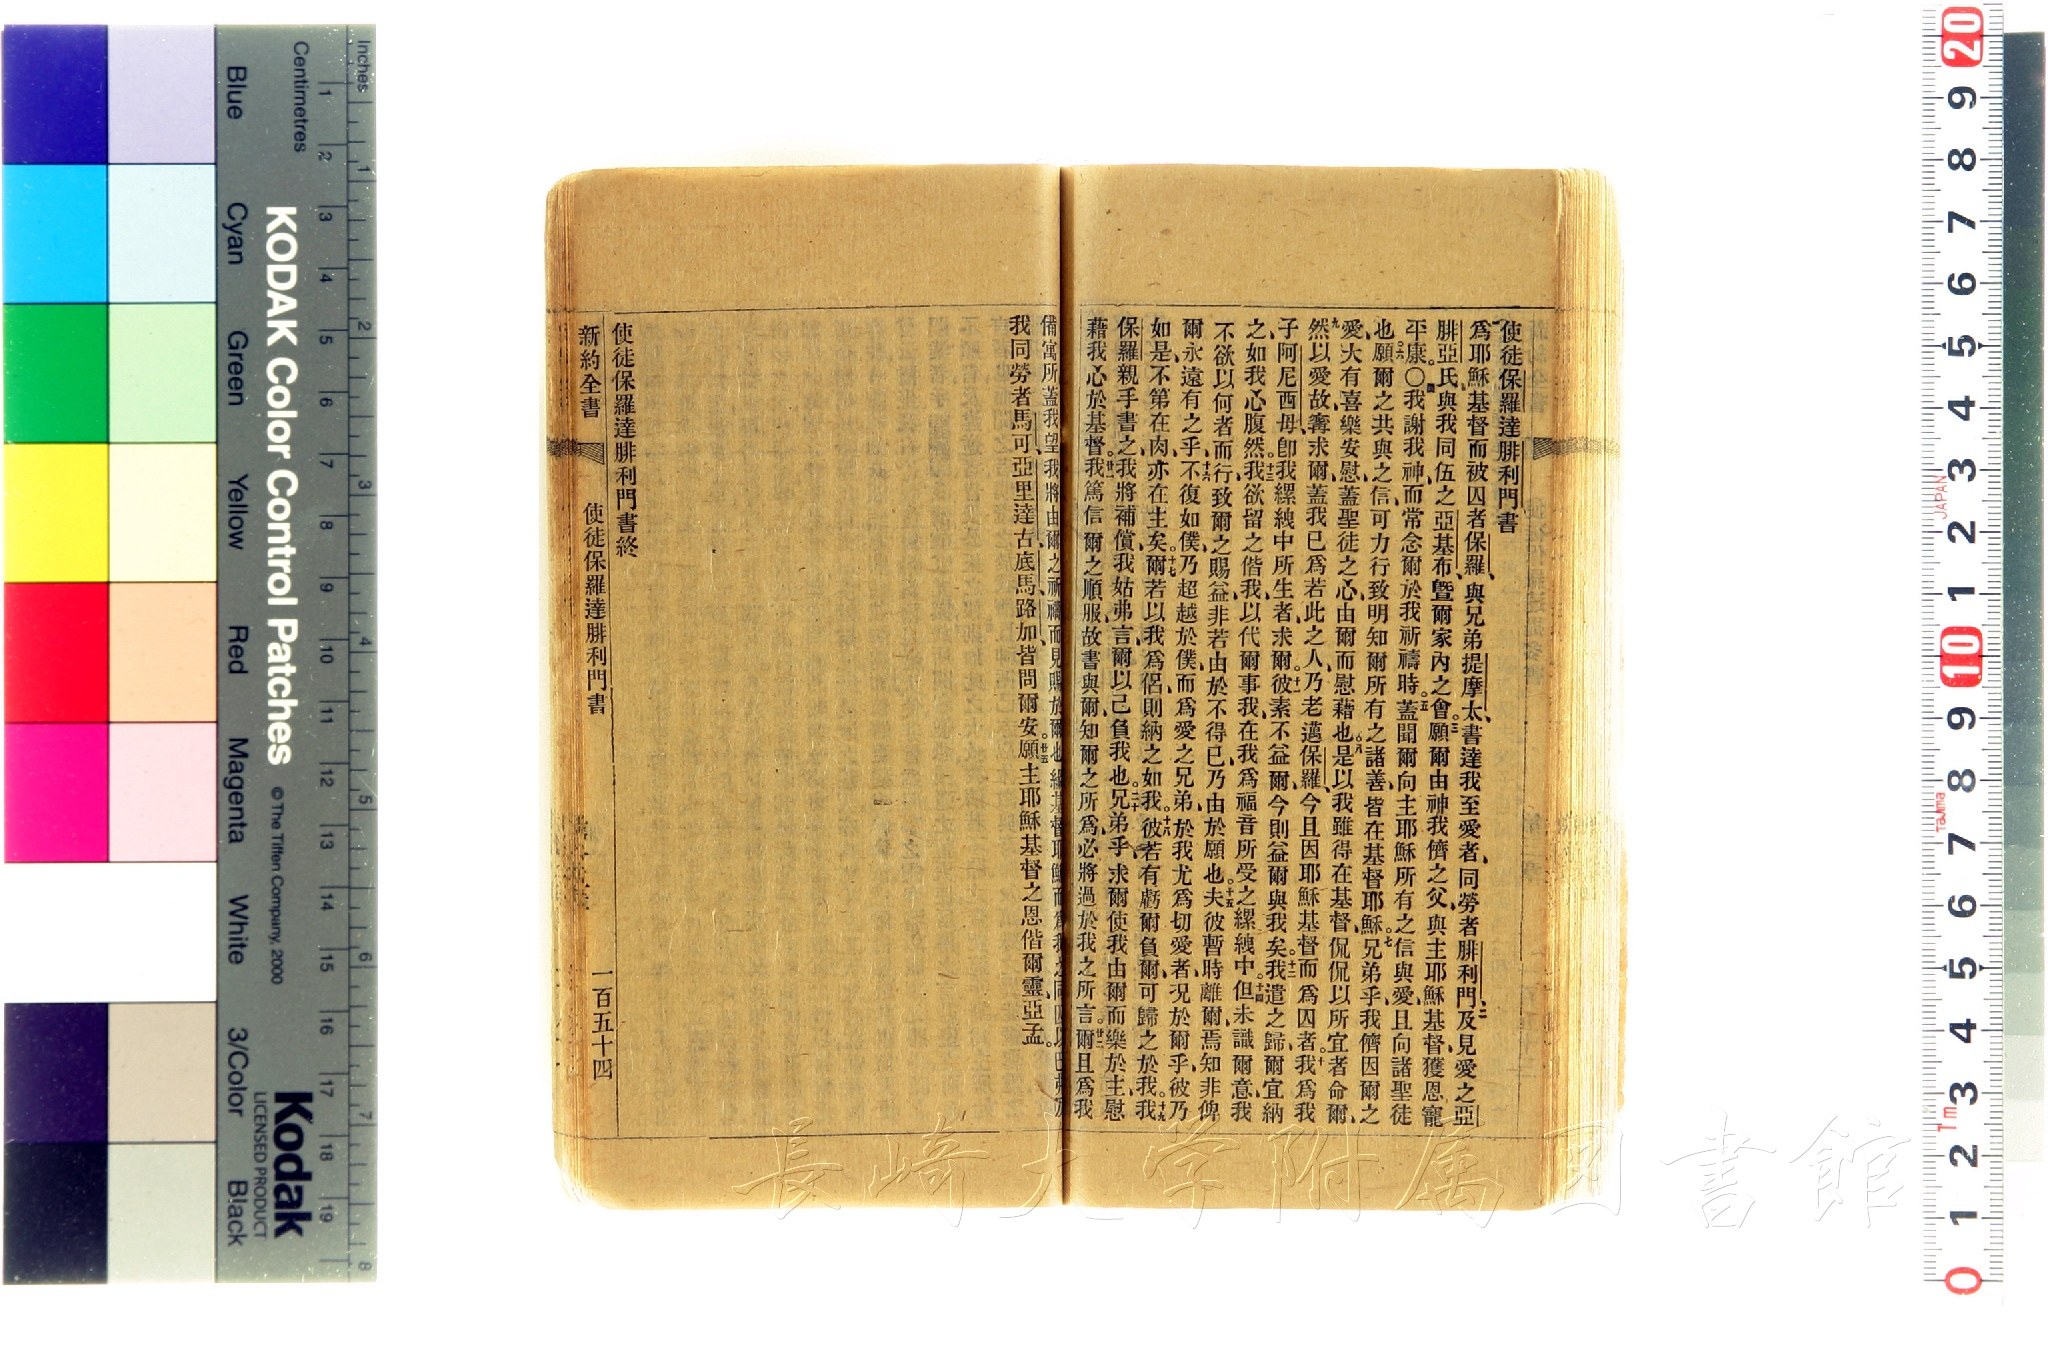 使徒保羅達腓利門書
爲耶穌基督而被囚者保羅、與兄弟提摩太、書達我至愛者、同勞者腓利門、二及見愛之亞
腓亞氏、與我同伍之亞基布、曁爾家內之會、三願爾由神我儕之父、與主耶穌基督、獲恩寵
平康。〇四我謝我神、而常念爾於我祈禱時、五蓋聞爾向主耶穌所有之信與愛、且向諸聖徒
也、六願爾之共與之信、可力行致明知爾所有之諸善、皆在基督耶穌、七兄弟乎、我儕因爾之
愛、大有喜樂安慰、蓋聖徒之心、由爾而慰藉也、八是以我雖得在基督、侃侃以所宜者命爾、
九然以愛故、寗求爾、蓋我已爲若此之人、乃老邁保羅、今且因耶穌基督而爲囚者、十我爲我
子阿尼西母、卽我縲絏中所生者、求爾、十一彼素不益爾、今則益爾與我矣、十二我遣之歸爾、宜納
之、如我心腹然、十三我欲留之偕我、以代爾事我在我爲福音所受之縲絏中、十四但未識爾意、我
不欲以何者而行、致爾之賜益、非若由於不得已、乃由於願也、十五夫彼暫時離爾、焉知非俾
爾永遠有之乎、十六不復如僕、乃超越於僕、而爲愛之兄弟、於我尤爲切愛者、况於爾乎、彼乃
如是、不第在肉、亦在主矣、十七爾若以我爲侶、則納之如我、十八彼若有虧爾負爾、可歸之於我、十九我
保羅親手書之、我將補償、我姑弗言爾以己負我也、二十兄弟乎、求爾使我由爾而樂於主、慰
藉我心於基督、廿一我篤信爾之順服、故書與爾、知爾之所爲、必將過於我之所言、廿二爾且爲我
備寓所、蓋我望我將由爾之祈禱、而見賜於爾也、緣基督耶穌而爲我之同囚以巴弗及
我同勞者馬可、亞里達古、底馬、路加、皆問爾安、廿五願主耶穌基督之恩偕爾靈、亞孟。
使徒保羅達腓利門書終
新約全書 使徒保羅達腓利門書 一百五十四
長崎大学附属図書館
Inches
Centimetres
KODAK Color Control Patches © The Tiffen Company, 2000
Kodak
LICENSED PRODUCT
Blue Cyan Green Yellow Red Magenta White 3/Color Black
1 2 3 4 5 6 7 8 9 10 11 12 13 14 15 16 17 18 19
1 2 3 4 5 6 7 8
20 9 8 7 6 5 4 3 2 1 10 9 8 7 6 5 4 3 2 1 0
JAPAN
Tajima
Tm